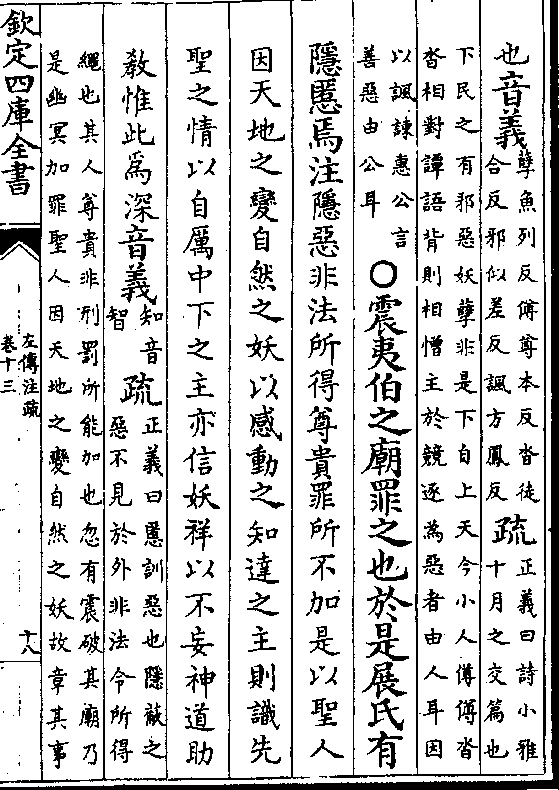 也音義孽魚列反傅尊本反沓徒
合反邪似差反諷方鳳反疏正義曰詩小雅
十月之交篇也
下民之有邪惡妖孽非是下自上天今小人傅傅沓
沓相對譚語背則相憎主於競逐為惡者由人耳因
以諷諫惠公言
善惡由公耳○震夷伯之廟罪之也於是展氏有
隱慝焉注隱惡非法所得尊貴罪所不加是以聖人
因天地之變自然之妖以感動之知達之主則識先
聖之情以自厲中下之主亦信妖祥以不妄神道助
教惟此為深音義知音
智疏正義曰慝訓惡也隱蔽之
惡不見於外非法令所得
繩也其人尊貴非刑罰所能加也忽有震破其廟乃
是幽冥加罪聖人因天地之變自然之妖故章其事
欽定四庫全書
左傳注疏
卷十三
十八